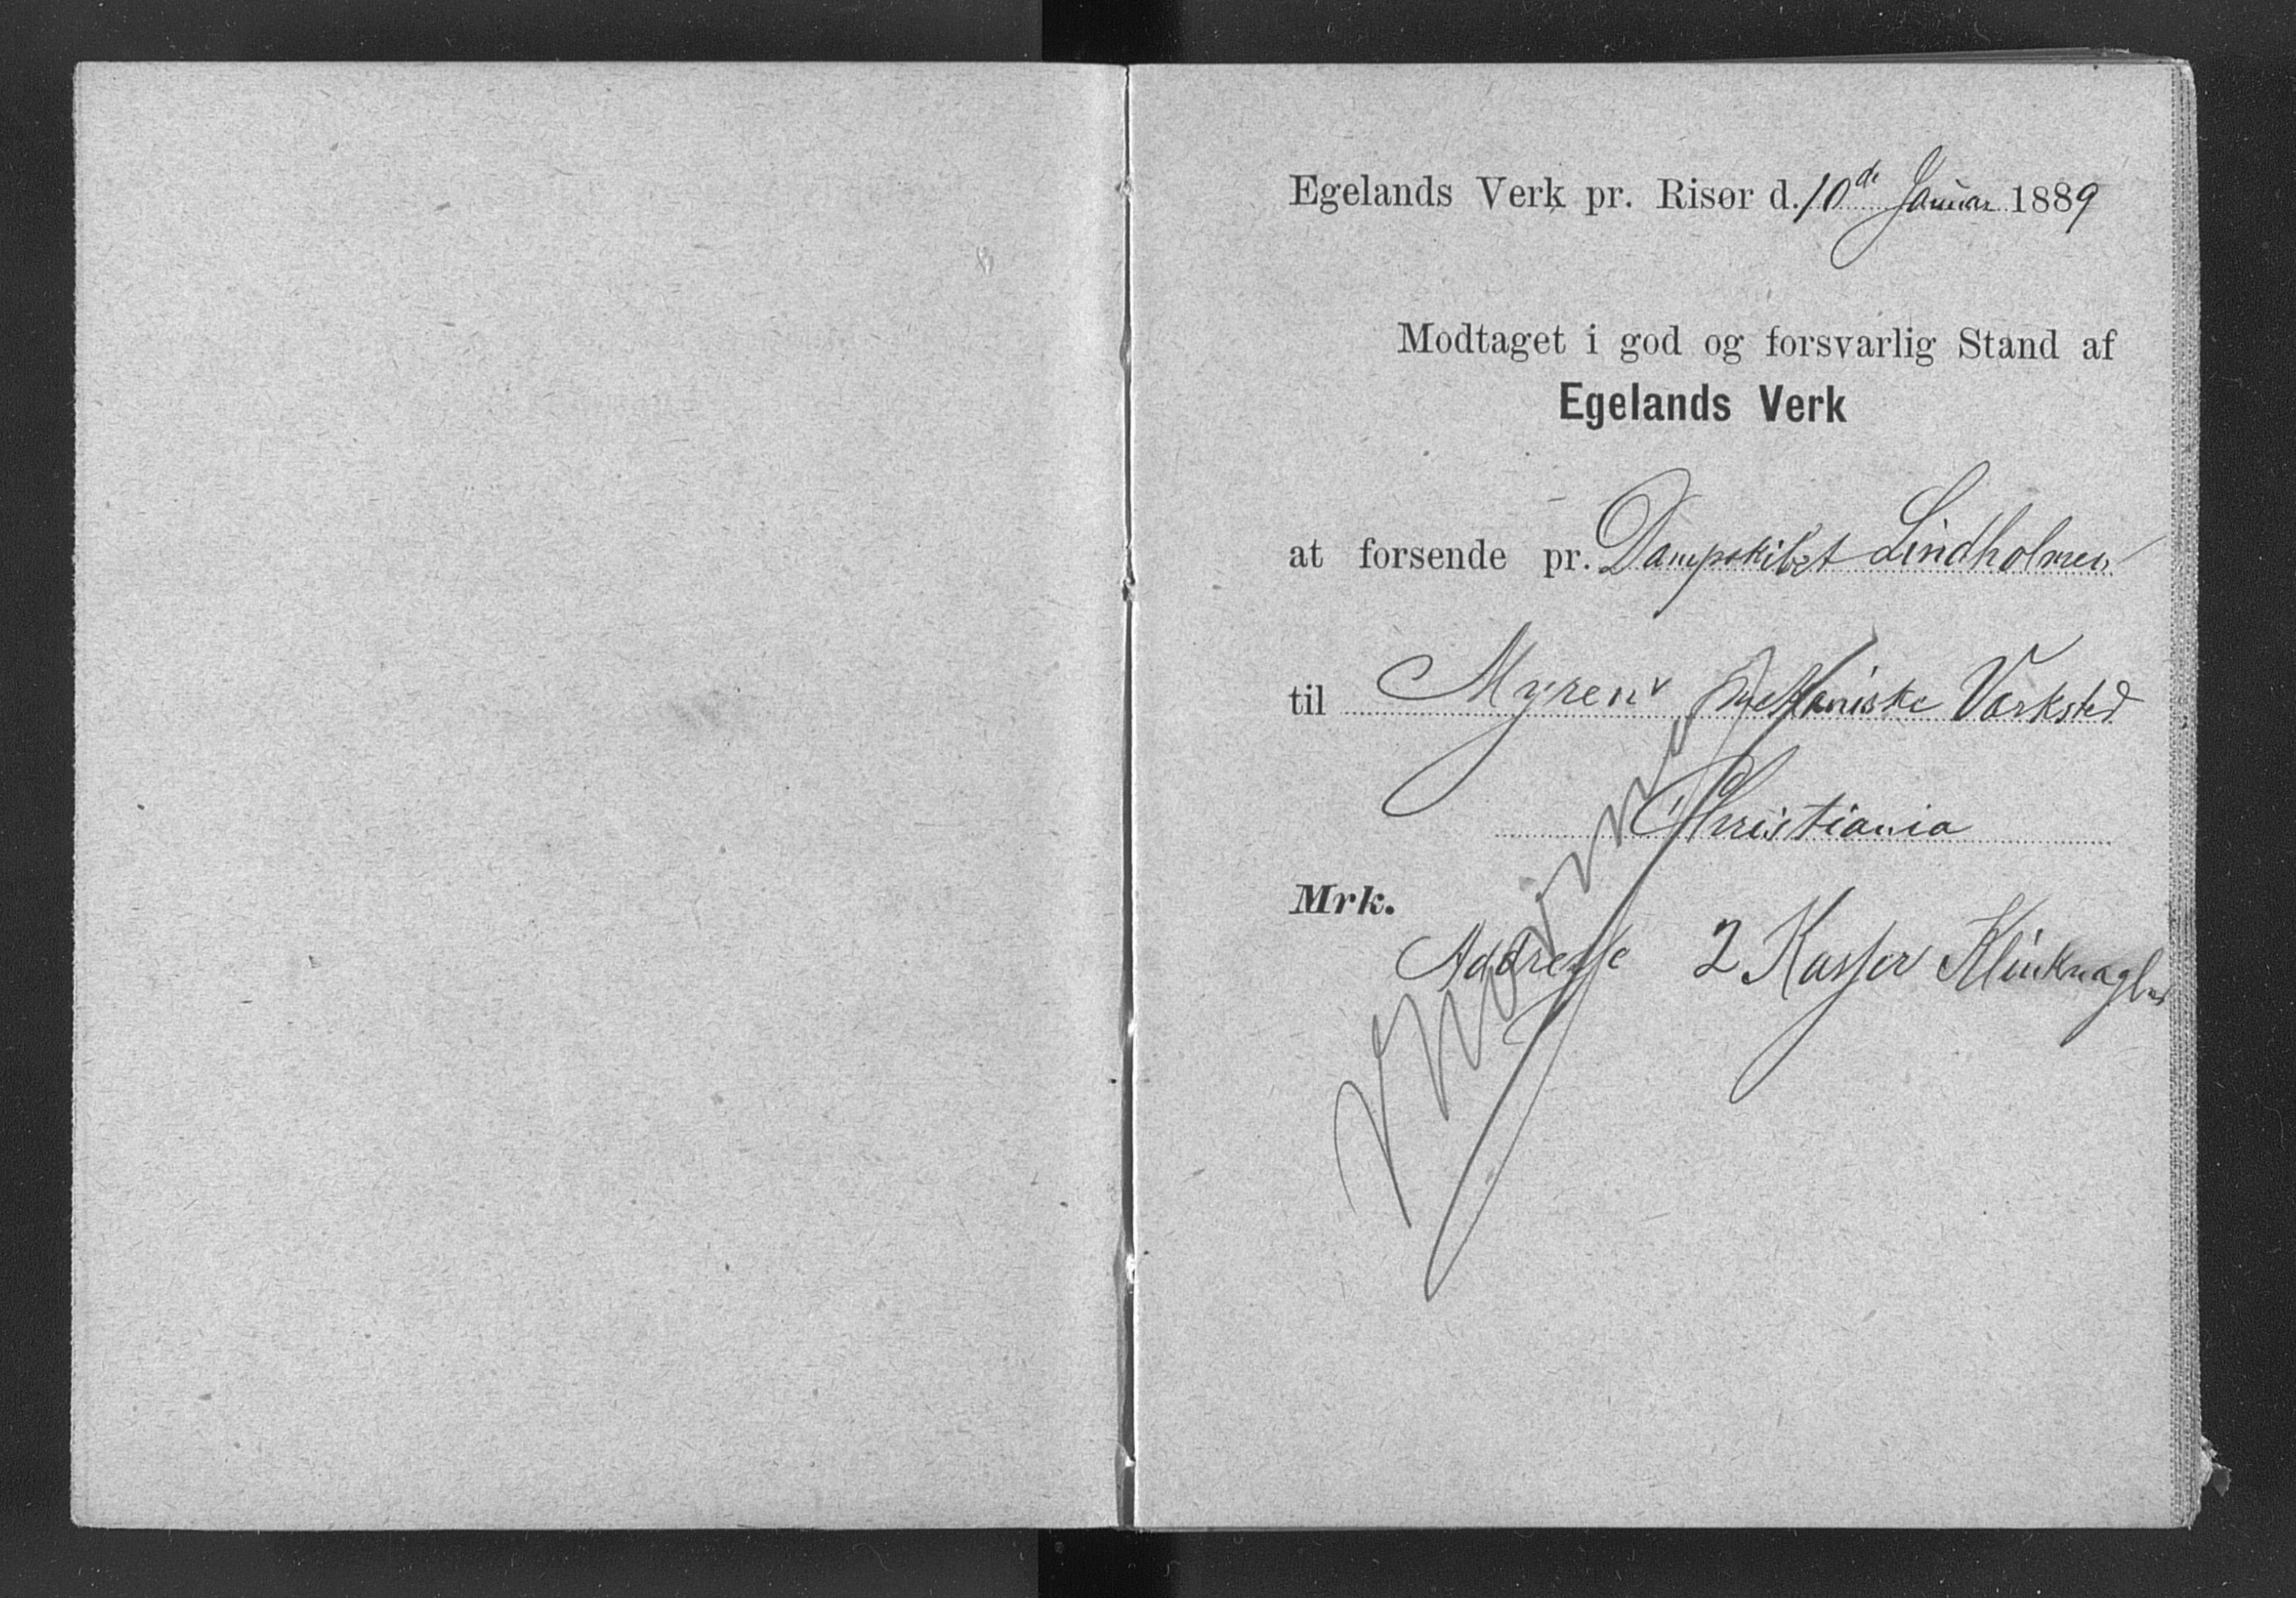 Egelands Verk pr. Risør d. 10de Januar 1889
Modtaget i god og forsvarlig Stand af
Egelands Verk
at forsende pr. Dampskibet Lindholmen
til Myrens Mekaniske Værksted
Christiania
Mrk.
Addresse 2 Kasser Klinknagler